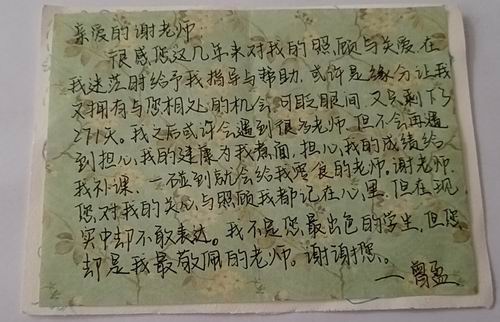 亲爱的谢老师
很感您这几年来对我的照顾与关爱，在
我迷茫时给予我指导与帮助，或许是缘分让我
又拥有与您相处的机会，可眨眼间，又只剩下了
271天。我之后或许会遇到很多老师，但不会再遇
到担心我的健康为我煮面，担心我的成绩给
我补课，一碰到就会给我零食的老师。谢老师，
您对我的关心与照顾我都记在心里，但在现
实中却不敢表达。我不是您最出色的学生，但您
却是我最敬佩的老师。谢谢您。
——曾盈